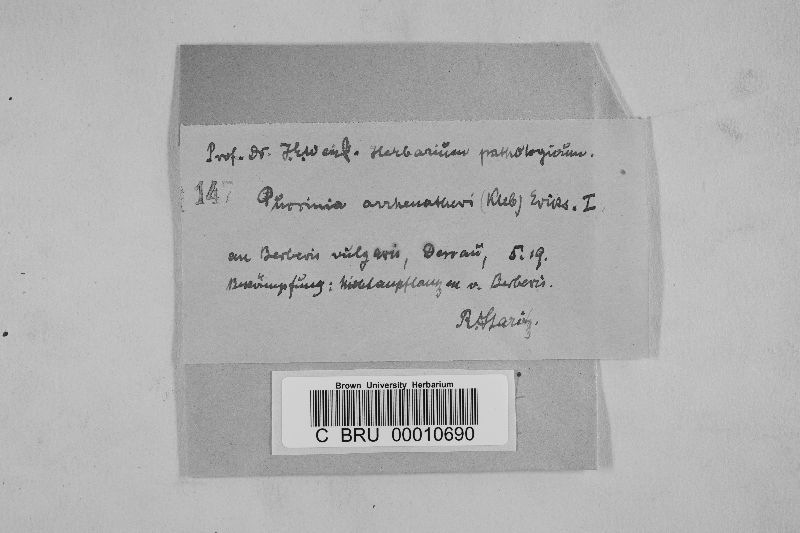 Prof. Dr. Herbarium pathologicum.
147 Puccinia arrhenatheri (Kleb) Eriks. I
an Berberis vulgaris, Dessau, 5.19.
Bekämpfung: Nichtanpflanzen v. Berberis.
R. Staritz.
Brown University Herbarium
C BRU 00010690